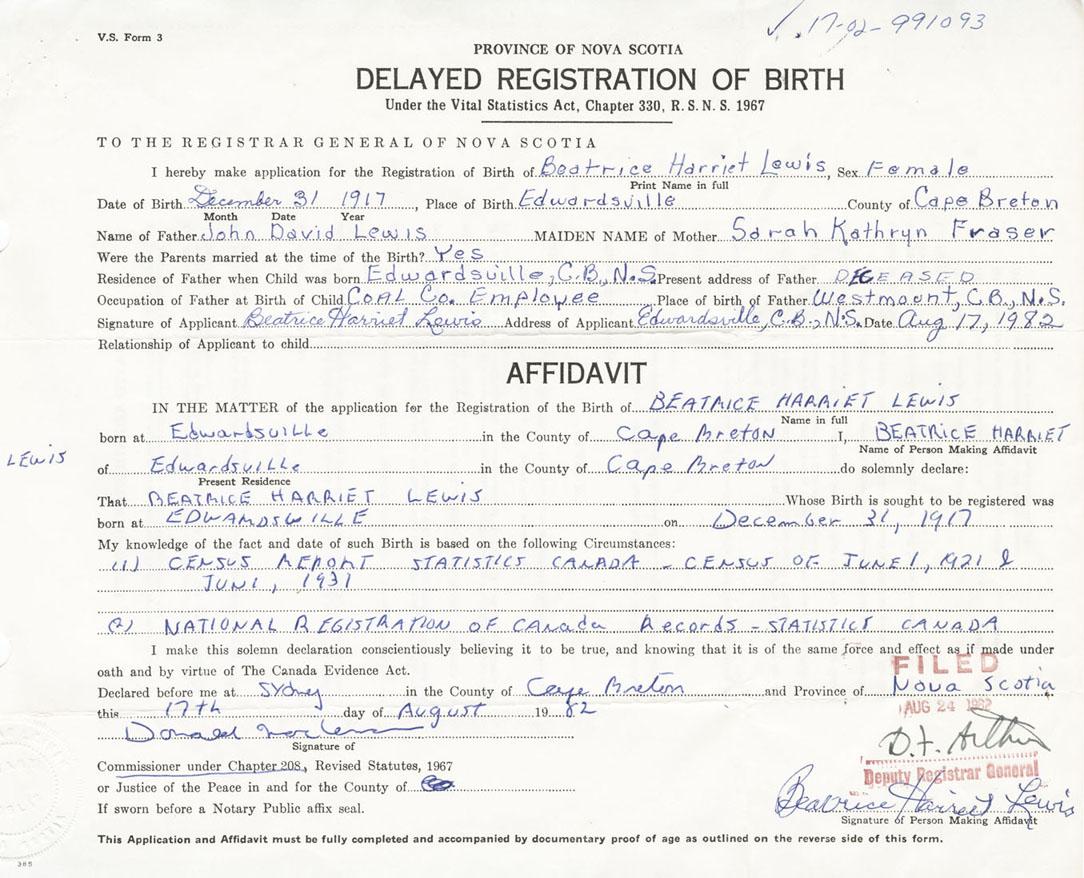 V.S. Form 3
17-02-991093
PROVINCE OF NOVA SCOTIA
DELAYED REGISTRATION OF BIRTH
Under the Vital Statistics Act, Chapter 330, R.S.N.S. 1967
TO THE REGISTRAR GENERAL OF NOVA SCOTIA
I hereby make application for the Registration of Birth of Beatrice Harriet Lewis, Sex Female
Print Name in full
Date of Birth December 31 1917, Place of Birth Edwardsville County of Cape Breton
Month Date Year
Name of Father John David Lewis MAIDEN NAME of Mother Sarah Kathryn Fraser
Were the Parents married at the time of the Birth? Yes
Residence of Father when Child was born Edwardsville, C.B., N.S. Present address of Father DECEASED
Occupation of Father at Birth of Child COAL Co. Employee, Place of birth of Father Westmount, C.B., N.S.
Signature of Applicant Beatrice Harriet Lewis Address of Applicant Edwardsville, C.B., N.S. Date Aug 17, 1982
Relationship of Applicant to child
AFFIDAVIT
IN THE MATTER of the application for the Registration of the Birth of BEATRICE HARRIET LEWIS
Name in full
born at Edwardsville in the County of Cape Breton I, BEATRICE HARRIET
Name of Person Making Affidavit
LEWIS
of Edwardsville in the County of Cape Breton do solemnly declare:
Present Residence
That BEATRICE HARRIET LEWIS Whose Birth is sought to be registered was
born at EDWARDSVILLE on December 31, 1917
My knowledge of the fact and date of such Birth is based on the following Circumstances:
(1) CENSUS REPORT STATISTICS CANADA - CENSUS OF JUNE 1, 1921 &
JUN 1, 1931
(2) NATIONAL REGISTRATION OF CANADA Records - STATISTICS CANADA
I make this solemn declaration conscientiously believing it to be true, and knowing that it is of the same force and effect as if made under
oath and by virtue of The Canada Evidence Act.
FILED
Declared before me at Sydney in the County of Cape Breton and Province of Nova Scotia
AUG 24 1982
this 17th day of August 1982
Donald
Signature of
D.F. Arthur
Deputy Registrar General
Commissioner under Chapter 208, Revised Statutes, 1967
or Justice of the Peace in and for the County of
Beatrice Harriet Lewis
If sworn before a Notary Public affix seal.
Signature of Person Making Affidavit
This Application and Affidavit must be fully completed and accompanied by documentary proof of age as outlined on the reverse side of this form.
385